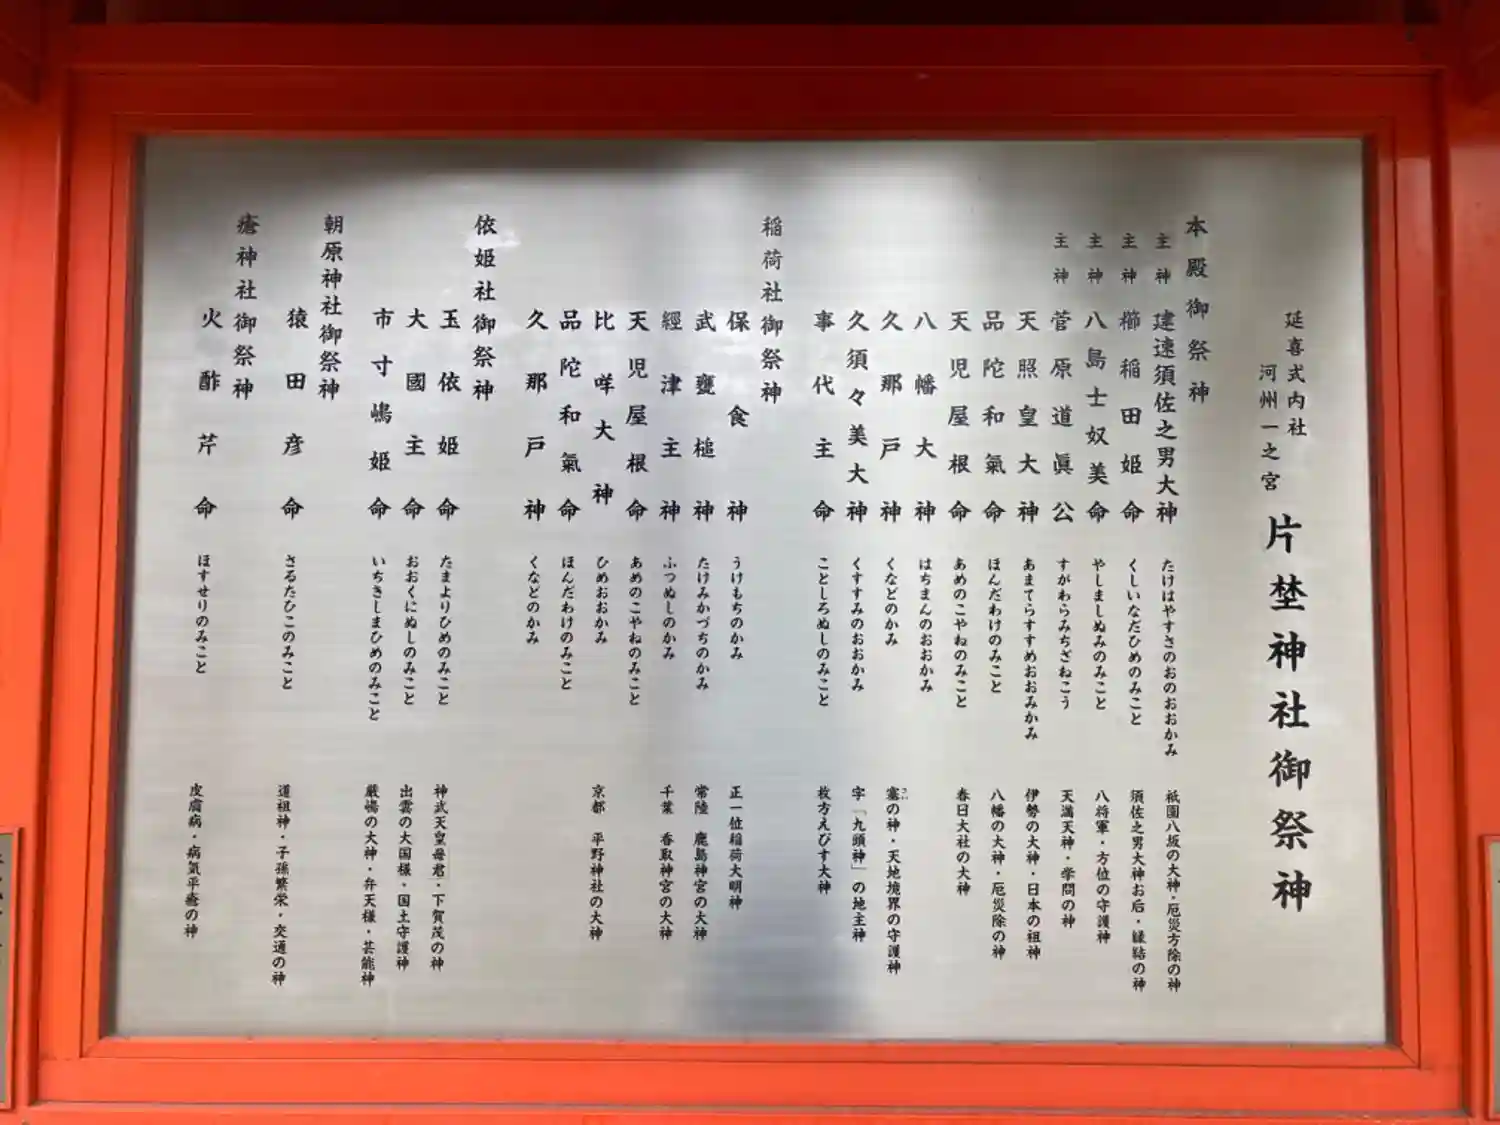 延喜式内社
河州一之宮
片埜神社御祭神
本殿御祭神
主神 建速須佐之男大神 たけはやすさのおのおおかみ 祇園八坂の大神・厄災方除の神
主神 櫛稲田姫命 くしいなだひめのみこと 須佐之男大神お后・縁結の神
主神 八島士奴美命 やしましぬみのみこと 八将軍・方位の守護神
主神 菅原道眞公 すがわらみちざねこう 天満天神・学問の神
天照皇大神 あまてらすすめおおみかみ 伊勢の大神・日本の祖神
品陀和氣命 ほんだわけのみこと 八幡の大神・厄災除の神
天児屋根命 あめのこやねのみこと 春日大社の大神
八幡大神 はちまんのおおかみ
久那戸神 くなどのかみ 塞の神・天地境界の守護神
久須々美大神 くすすみのおおかみ 字「九頭神」の地主神
事代主命 ことしろぬしのみこと 枚方えびす大神
稲荷社御祭神
保食神 うけもちのかみ 正一位稲荷大明神
武甕槌神 たけみかづちのかみ 常陸 鹿島神宮の大神
經津主神 ふつぬしのかみ 千葉 香取神宮の大神
天児屋根命 あめのこやねのみこと
比咩大神 ひめおおかみ 京都 平野神社の大神
品陀和氣命 ほんだわけのみこと
久那戸神 くなどのかみ
依姫社御祭神
玉依姫命 たまよりひめのみこと 神武天皇母君・下賀茂の神
大國主命 おおくにぬしのみこと 出雲の大国様・国土守護神
市寸嶋姫命 いちきしまひめのみこと 厳嶋の大神・弁天様・芸能神
朝原神社御祭神
猿田彦命 さるたひこのみこと 道祖神・子孫繁栄・交通の神
瘡神社御祭神
火酢芹命 ほすせりのみこと 皮膚病・病気平癒の神